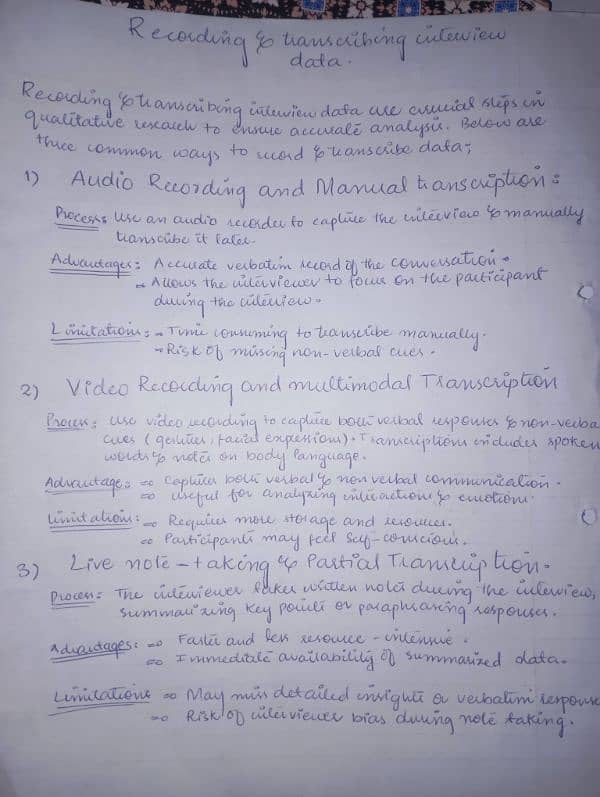 Recording & transcribing interview
data.
Recording & transcribing interview data are crucial steps in
qualitative research to ensure accurate analysis. Below are
three common ways to record & transcribe data;
1) Audio Recording and Manual transcription:
Process: Use an audio recorder to capture the interview & manually
transcribe it later.
Advantages: Accurate verbatim record of the conversation.
→ Allows the interviewer to focus on the participant
during the interview.
Limitations: → Time consuming to transcribe manually.
→ Risk of missing non-verbal cues.
2) Video Recording and multimodal Transcription
Process: Use video recording to capture both verbal responses & non-verba
cues (gestures, facial expressions). Transcriptions includes spoken
words & notes on body language.
Advantages: → Captures both verbal & non verbal communication.
→ useful for analyzing interactions & emotions.
Limitations: → Requires more storage and resources.
→ Participants may feel self-conscious.
3) Live note-taking & Partial Transcription.
Process: The interviewer takes written notes during the interview,
summarizing key points or paraphrasing responses.
Advantages: → Faster and less resource-intensive.
→ Immediate availability of summarized data.
Limitations → May miss detailed insights or verbatim response
→ Risk of interviewer bias during note taking.